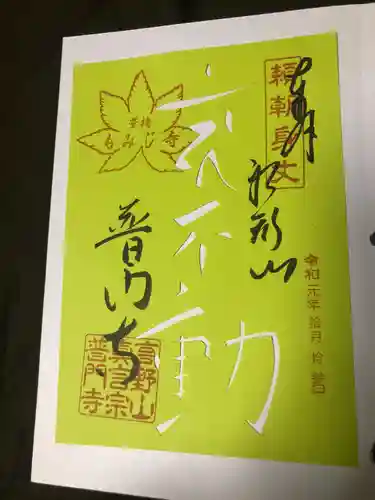 奉拝
頼朝身丈
船形山
令和元年拾月拾四日
立不動
菩提
もみじ寺
普門寺
高野山
真言宗
普門寺